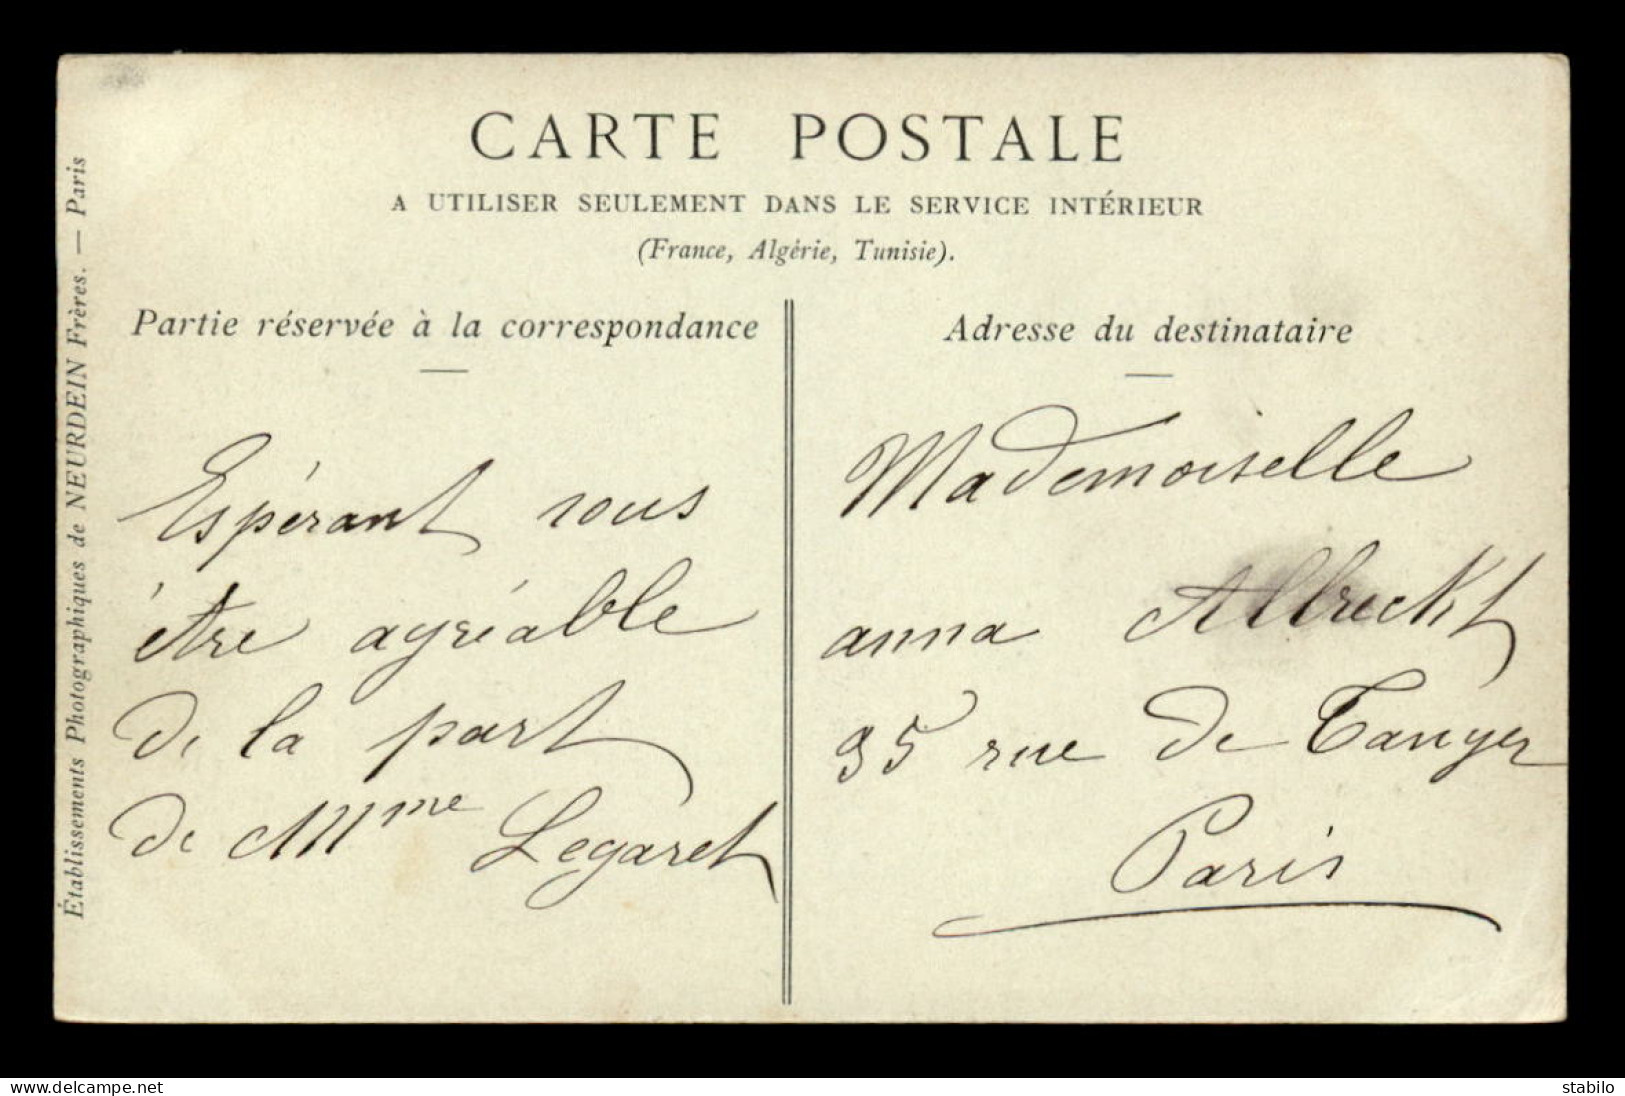 CARTE POSTALE
A UTILISER SEULEMENT DANS LE SERVICE INTÉRIEUR
(France, Algérie, Tunisie).
Établissements Photographiques de NEURDEIN Frères. — Paris
Partie réservée à la correspondance
Espérant vous
être agréable
de la part
de Mme Legaret
Adresse du destinataire
Mademoiselle
anna Albreckt
35 rue de Tanger
Paris
delcampe.net
stabilo